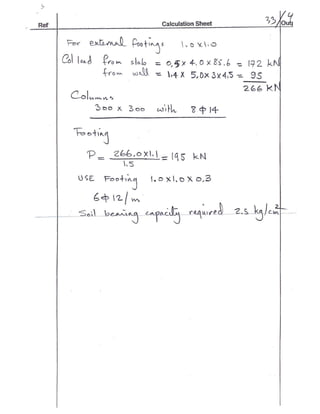 Ref Calculation Sheet 33/4 Out
For external Footings 1.0 x 1.0
Col load from slab = 0.5 x 4.0 x 85.6 = 172 kN
from wall = 1.4 x 5.0 x 3 x 4.5 = 95
266 kN
Columns
300 x 300 with 8 ϕ 14
Footing
P = 266.0 x 1.1 / 1.5 = 195 kN
USE Footing 1.0 x 1.0 x 0.3
6 ϕ 12/m
Soil bearing capacity required 2.5 kg/cm2